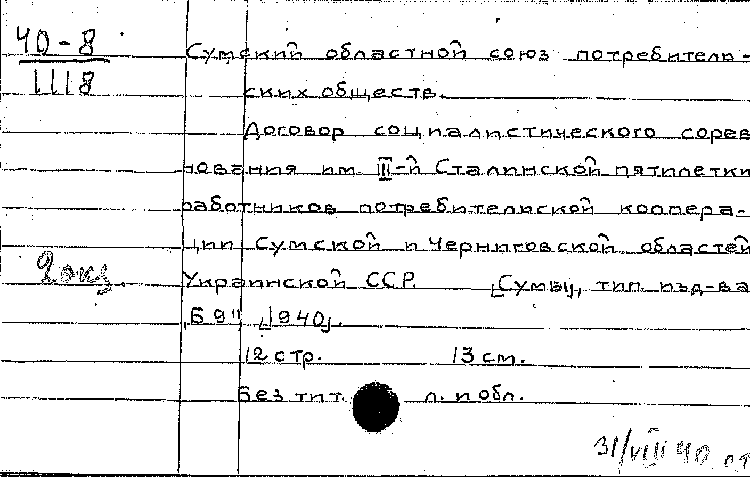 40-8
1118
Сумский областной союз потребитель-
ских обществ.
Договор социалистического сорев
нования им. III-й Сталинской пятилетки
работников потребительской коопера-
ции Сумской и Черниговской областей
2 экз.
Украинской ССР. [Сумы], тип. изд-ва
[1940].
12 стр. 13 см.
Без тит. л. и обл.
31/VIII 40